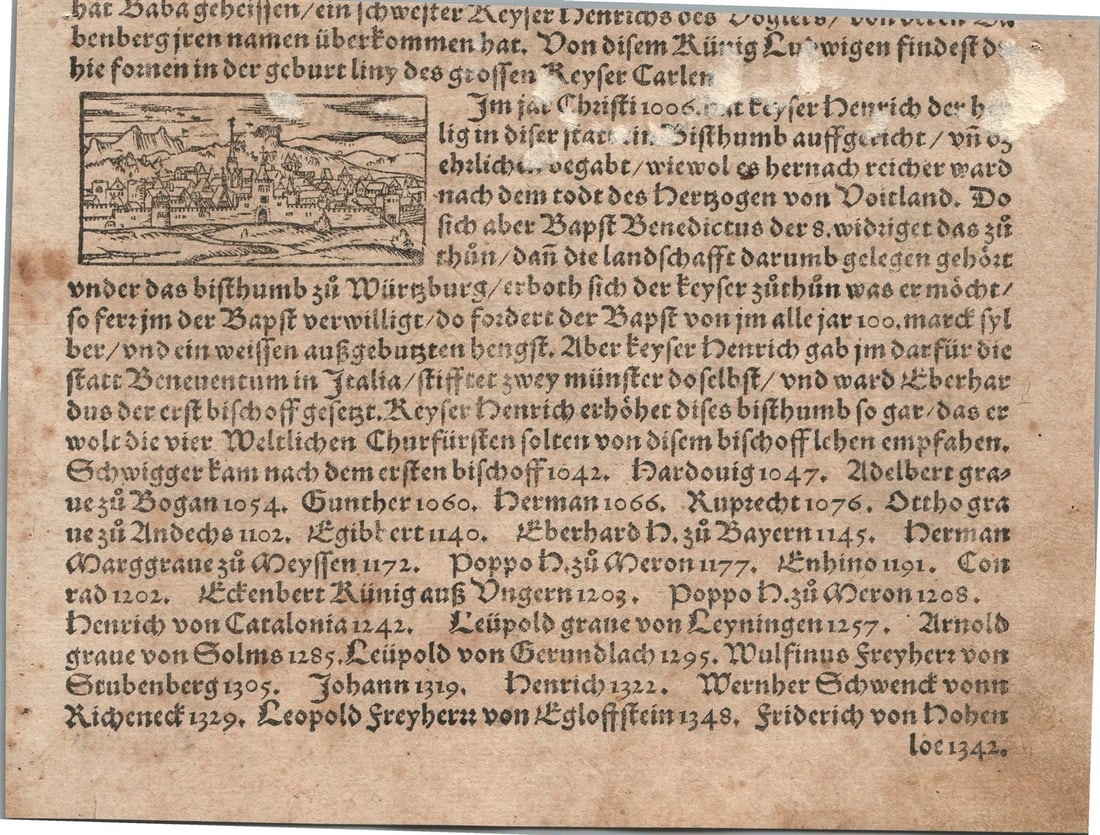 hat Baba geheissen/ein schwester Keyser Henrichs des Voglers/
benberg jren namen überkommen hat. Von disem Künig Ludwigen findest
hie fornen in der geburt liny des grossen Keyser Carlen
Im jar Christi 1006. hat keyser Henrich der
lig in diser statt ein Bisthumb auffgericht/vñ
ehrlich begabt/wiewol es hernach reicher ward
nach dem todt des Hertzogen von Voitland. Do
sich aber Bapst Benedictus der 8. widriget das zů
thůn/dañ die landschafft darumb gelegen gehört
vnder das bisthumb zů Würtzburg/erboth sich der keyser zůthůn was er möcht/
so ferr jm der Bapst verwilligt/do fordert der Bapst von jm alle jar 100. marck syl
ber/vnd ein weissen außgebutzten hengst. Aber keyser Henrich gab jm darfür die
statt Beneuentum in Italia/stifftet zwey münster doselbst/vnd ward Eberhar
dus der erst bischoff gesetzt. Keyser Henrich erhöhet dises bisthumb so gar/das er
wolt die vier Weltlichen Churfürsten solten von disem bischoff lehen empfahen.
Schwigger kam nach dem ersten bischoff 1042. Hardouig 1047. Adelbert gra-
ue zů Bogan 1054. Gunther 1060. Herman 1066. Ruprecht 1076. Ottho gra
ue zů Andechs 1102. Egibert 1140. Eberhard H. zů Bayern 1145. Herman
Marggraue zů Meyssen 1172. Poppo H. zů Meron 1177. Enhino 1191. Con
rad 1202. Eckenbert Künig auß Vngern 1203. Poppo H. zů Meron 1208.
Henrich von Catalonia 1242. Leüpold graue von Leyningen 1257. Arnold
graue von Solms 1285. Leüpold von Gerundlach 1295. Wulfinus Freyherr von
Stubenberg 1305. Johann 1319. Henrich 1322. Wernher Schwenck vonn
Richeneck 1329. Leopold Freyherr von Egloffstein 1348. Friderich von Hohen
loe 1342.